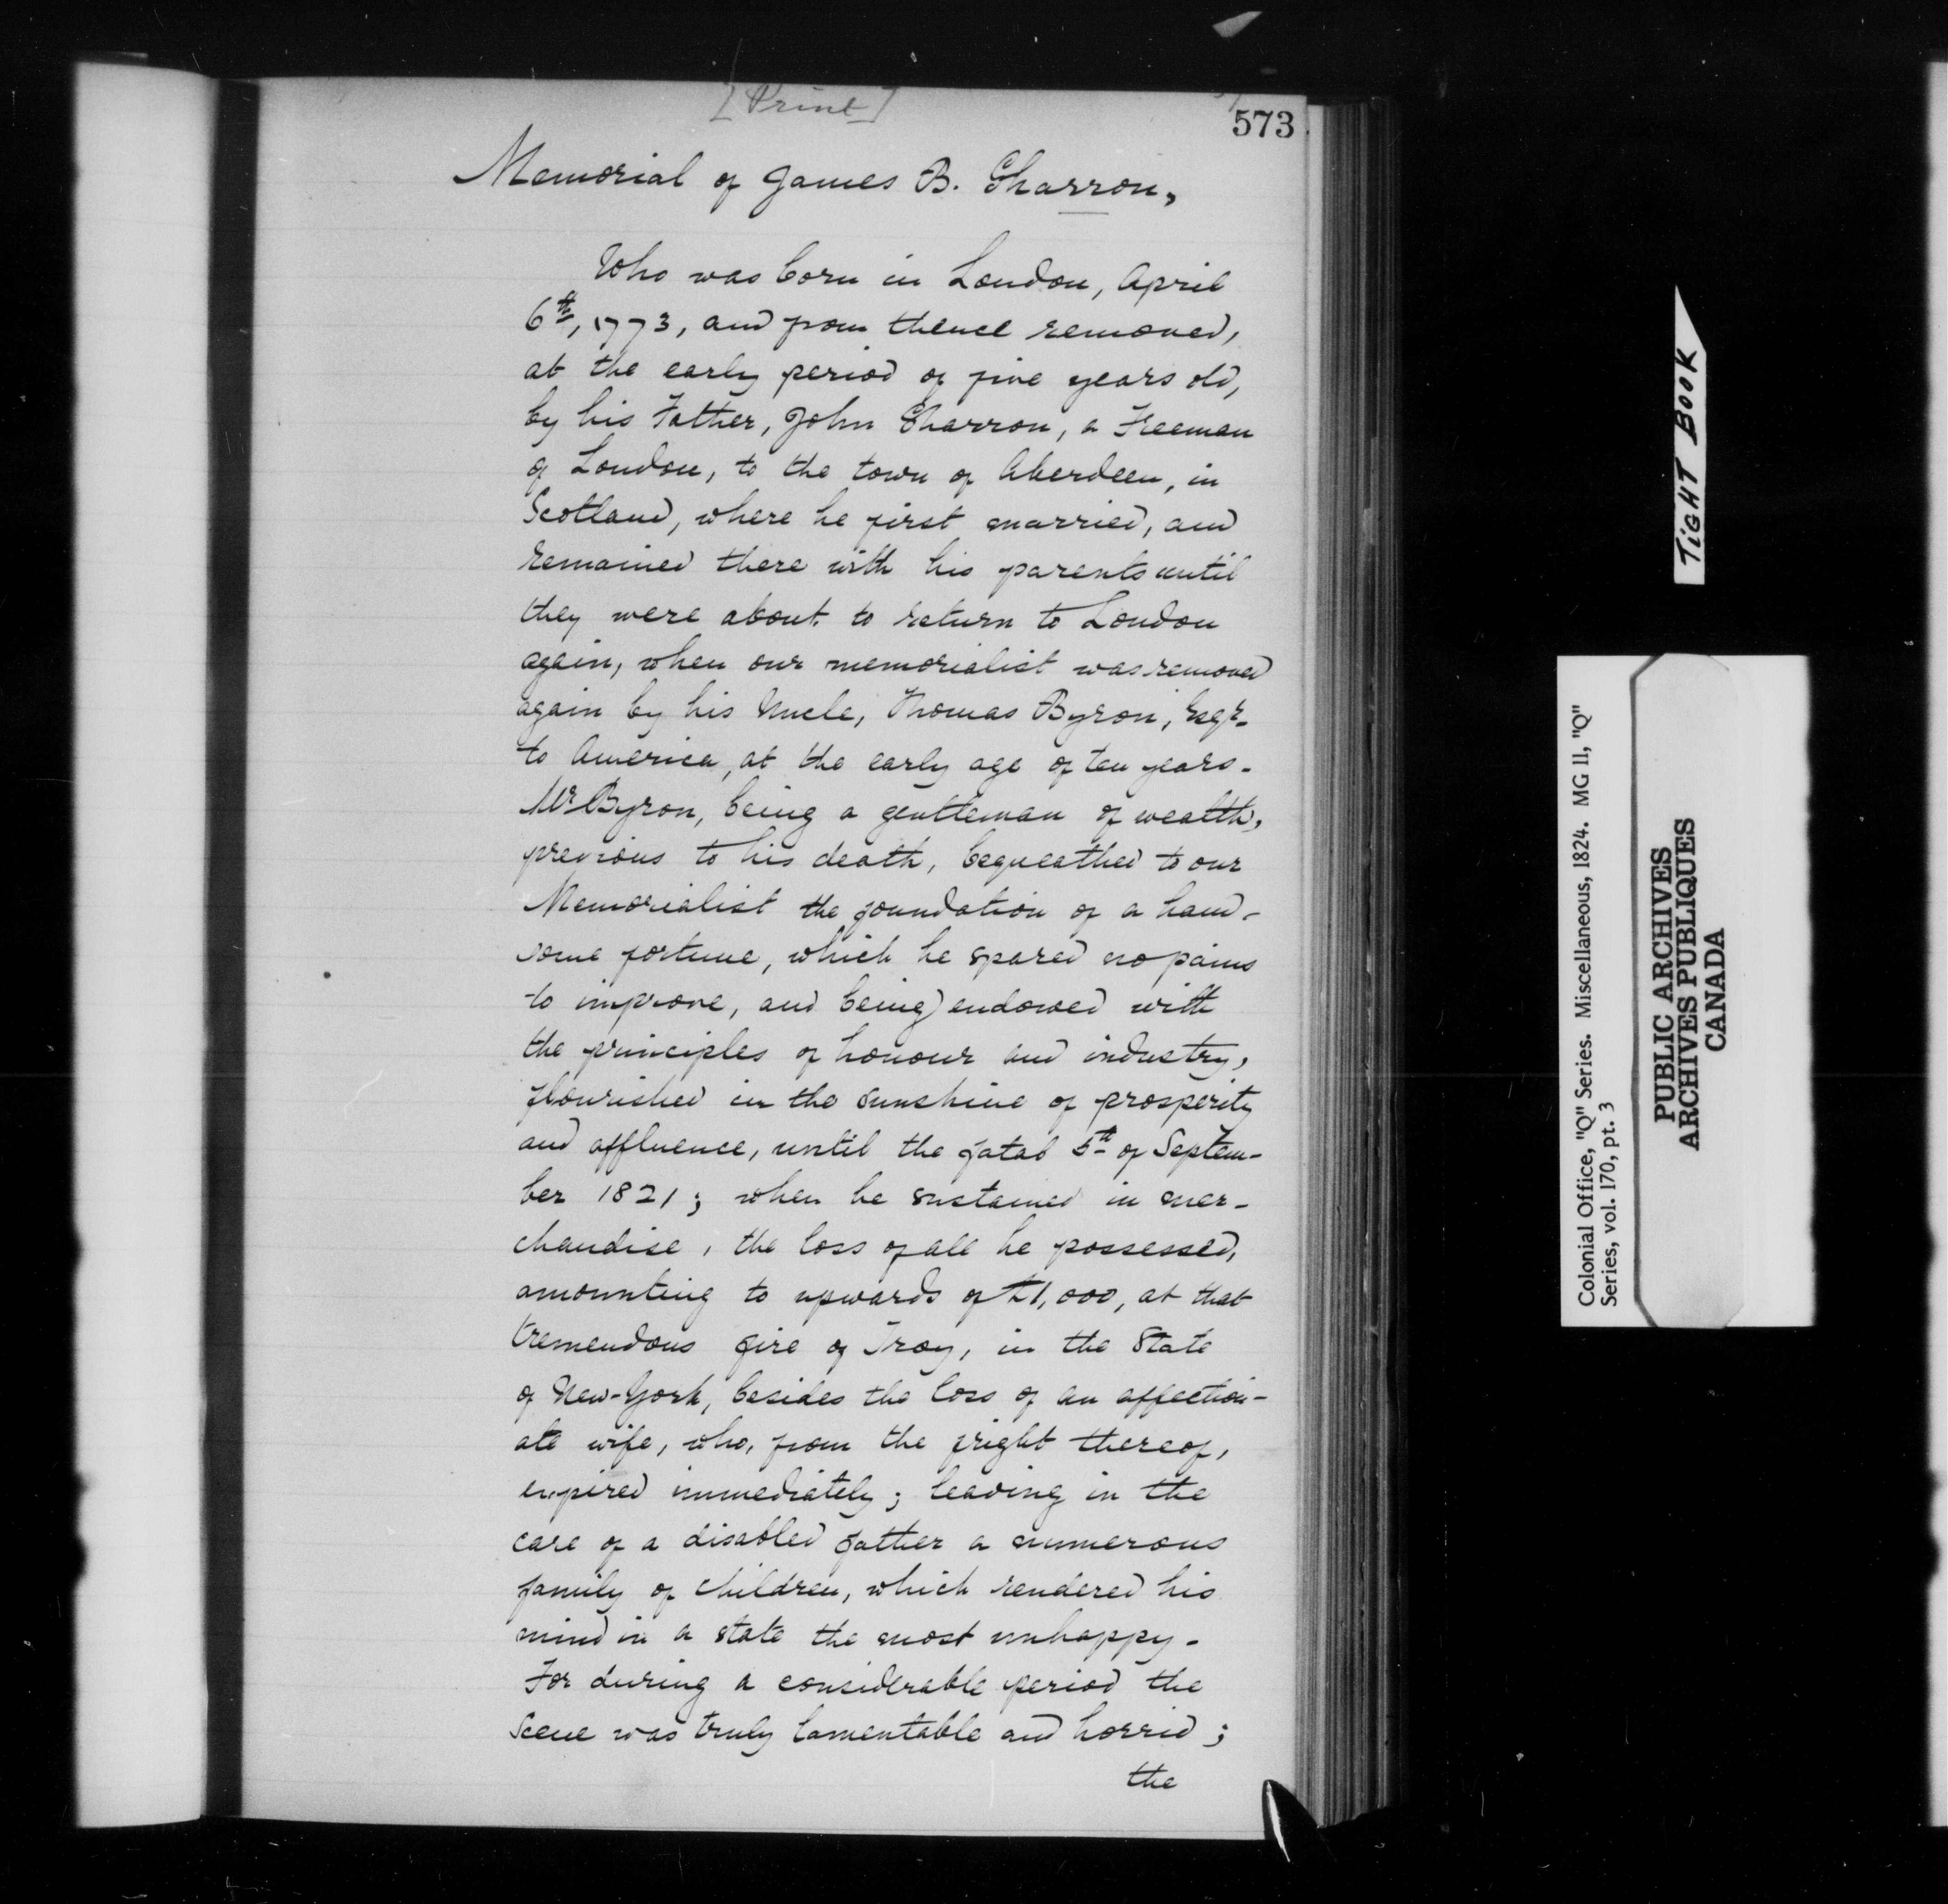 [Print]
573
Memorial of James B. Sharron,
Who was born in London, April
6th, 1773, and from thence removed,
at the early period of five years old,
by his Father, John Sharron, a Freeman
of London, to the town of Aberdeen, in
Scotland, where he first married, and
remained there with his parents until
they were about to return to London
again, when our memorialist was removed
again by his Uncle, Thomas Byron, Esqr.
to America, at the early age of ten years.
Mr Byron, being a gentleman of wealth,
previous to his death, bequeathed to our
Memorialist the foundation of a hand-
some fortune, which he spared no pains
to improve, and being endowed with
the principles of honour and industry,
flourished in the sunshine of prosperity
and affluence, until the fatal 5th of Septem-
ber 1821; when he sustained in mer-
chandise, the loss of all he possessed,
amounting to upwards of £1,000, at that
tremendous fire of Troy, in the State
of New-York, besides the loss of an affection-
ate wife, who, from the fright thereof,
expired immediately; leaving in the
care of a disabled father a numerous
family of children, which rendered his
mind in a state the most unhappy.
For during a considerable period the
scene was truly lamentable and horrid;
the
TIGHT BOOK
Colonial Office, "Q" Series. Miscellaneous, 1824. MG 11, "Q"
Series, vol. 170, pt. 3
PUBLIC ARCHIVES
ARCHIVES PUBLIQUES
CANADA